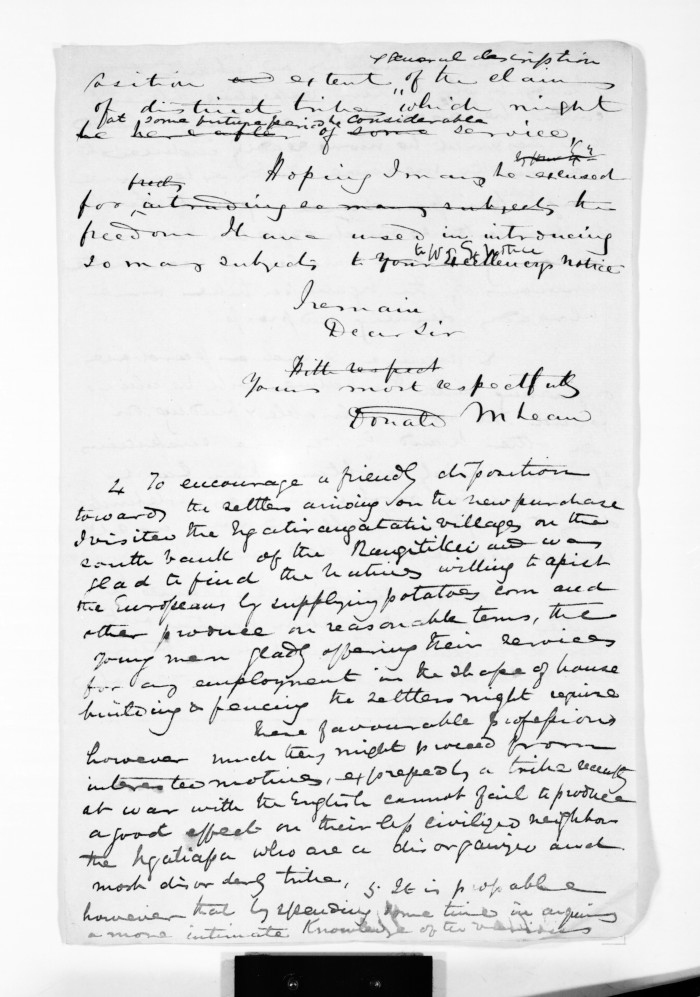 general description
position and extent of the claims
of distinct tribes which might
at some future period be considerable
be hereafter of some service.
Hoping I may be excused
for intruding so many subjects the
freedom I have used in introducing
so many subjects to Your Excellencys notice
to Yr Ex notice
I remain
Dear Sir
With respect
Yours most respectfully
Donald McLean
4 To encourage a friendly disposition
towards the settlers arriving on the new purchase
I visited the Ngatiraugatahi villages on the
south bank of the Rangitikei and was
glad to find the natives willing to assist
the Europeans by supplying potatoes corn and
other produce on reasonable terms, the
young men gladly offering their services
for any employment in the shape of house
building & fencing the settlers might require
These favourable professions
however much they might proceed from
interested motives, expressed by a tribe recently
at war with the English cannot fail to produce
a good effect on their less civilized neighbors
the Ngatiapa who are a disorganized and
most disorderly tribe. 5. It is probable
however that by spending some time in acquiring
a more intimate knowledge of the various